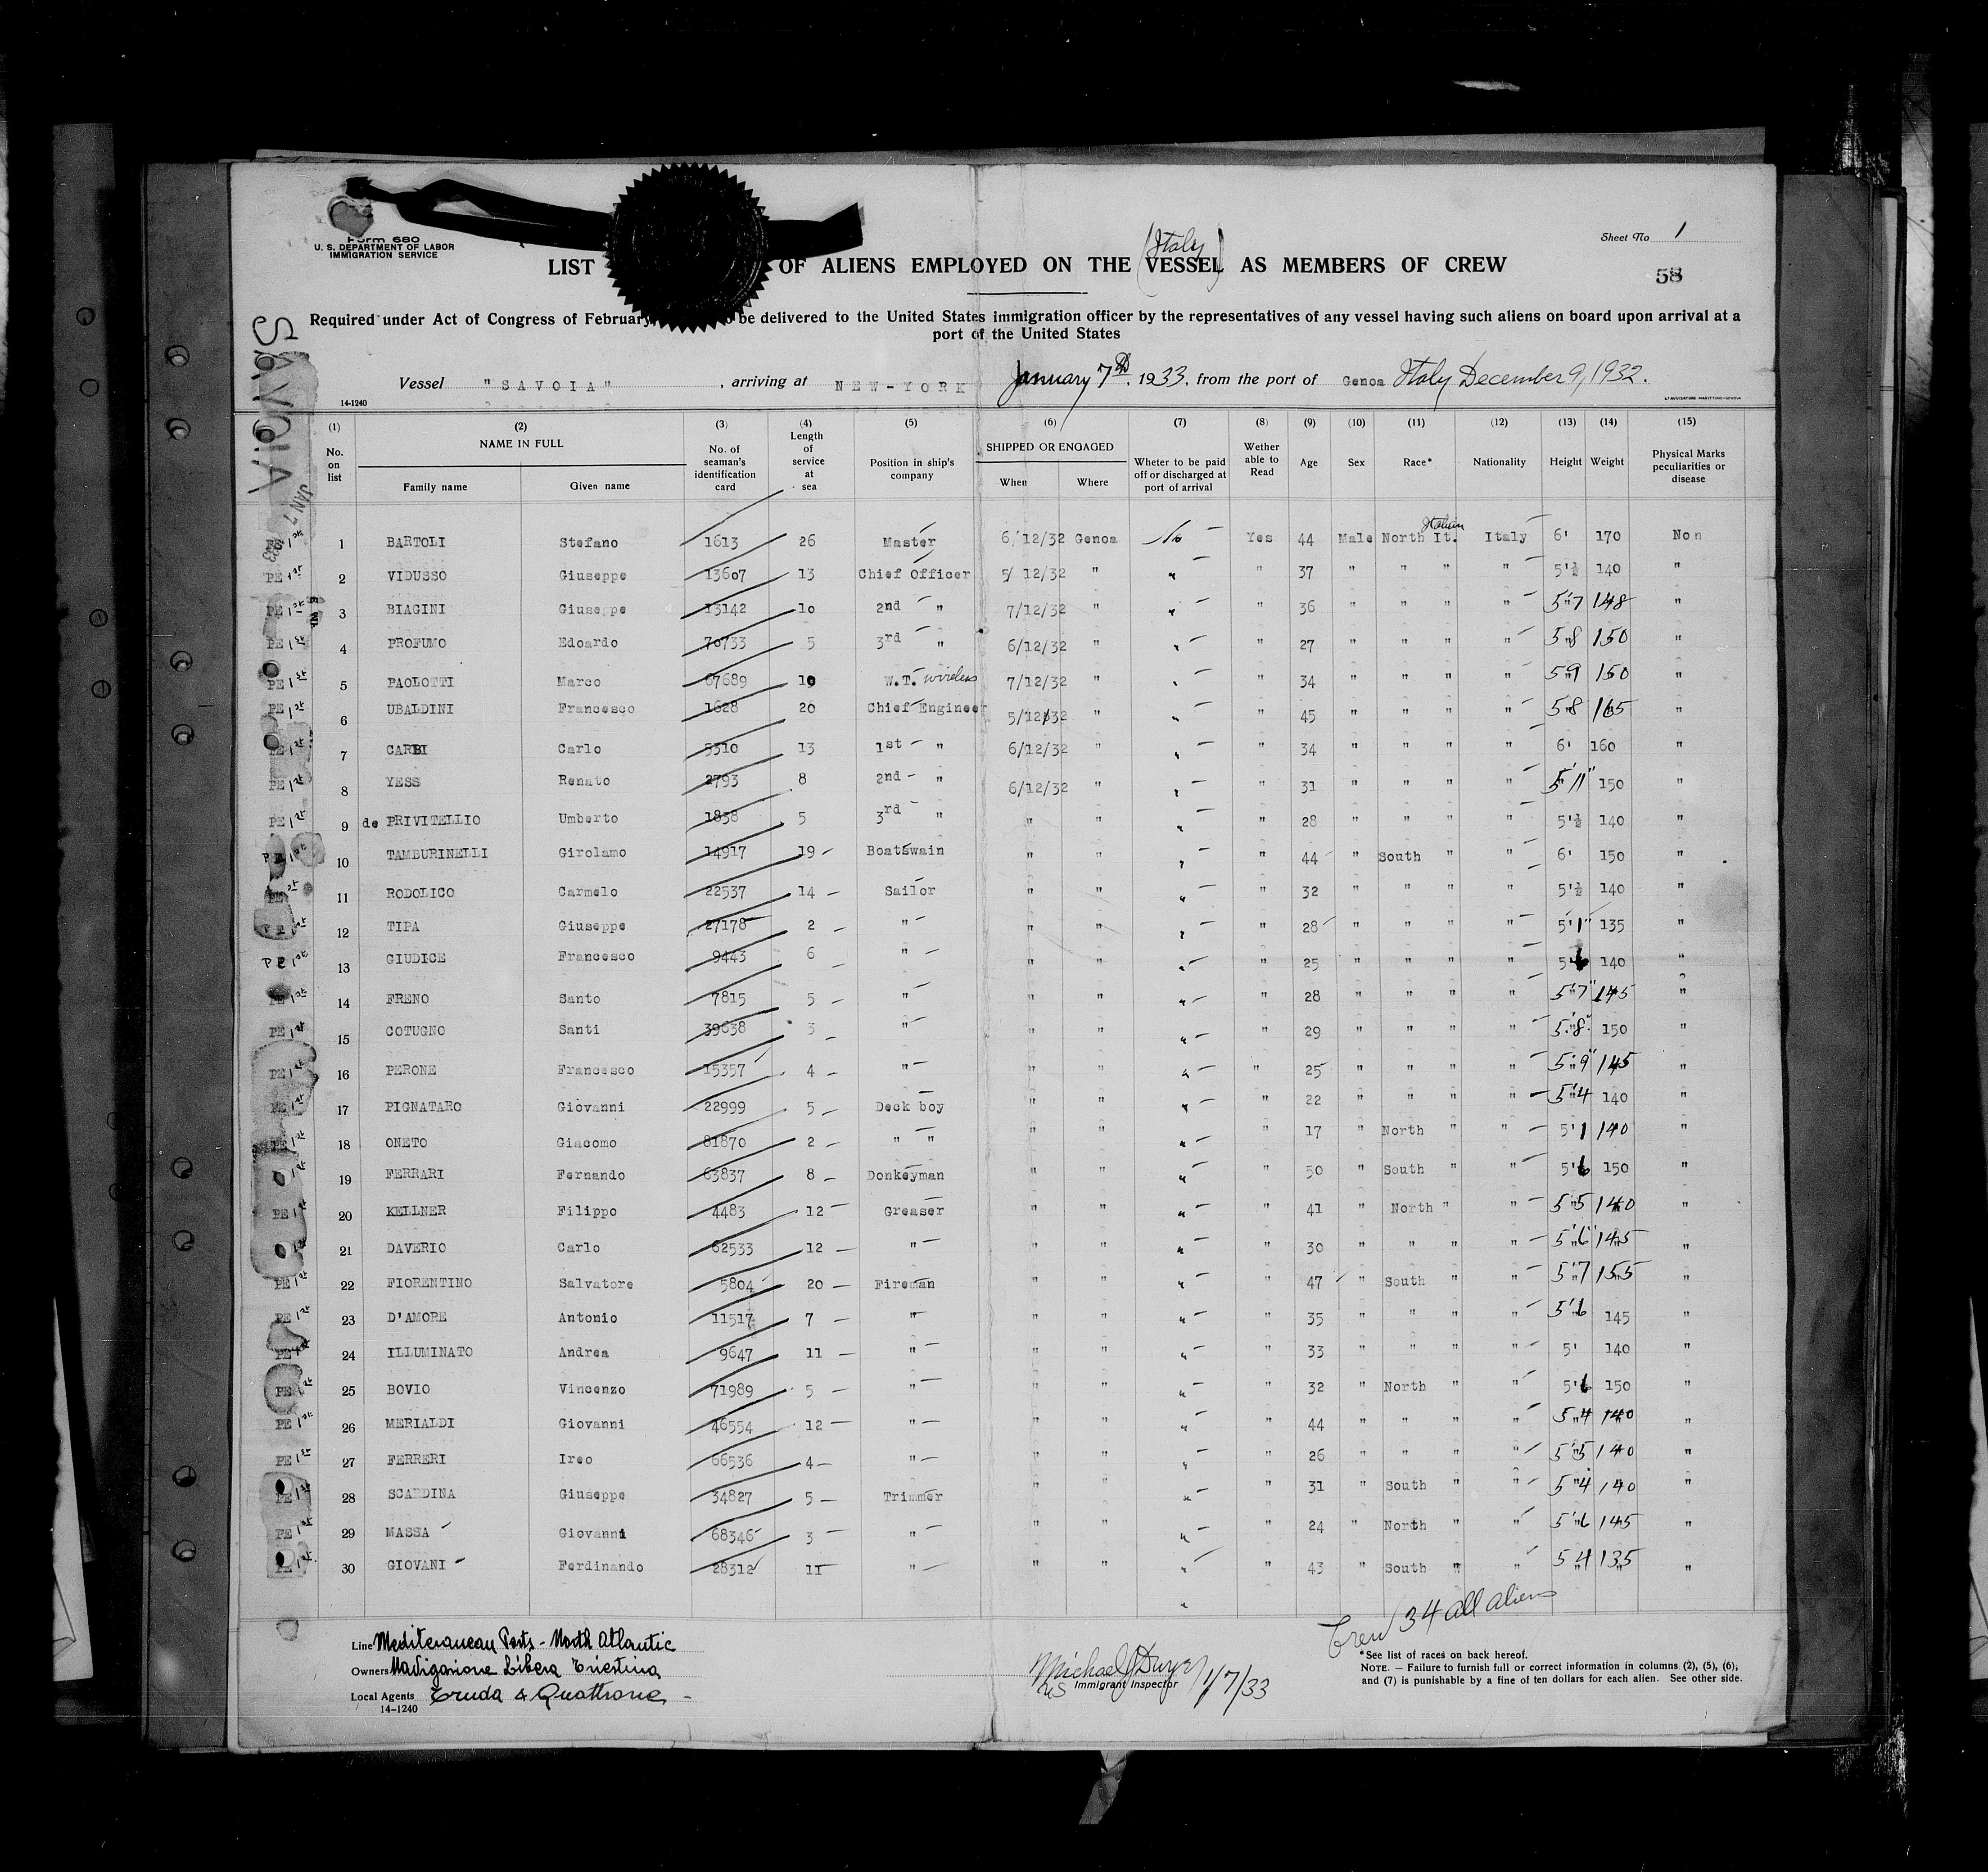 Form 680
U. S. DEPARTMENT OF LABOR
IMMIGRATION SERVICE
Sheet No 1
58
(Italy)
LIST OF ALIENS EMPLOYED ON THE VESSEL AS MEMBERS OF CREW
Required under Act of Congress of February be delivered to the United States immigration officer by the representatives of any vessel having such aliens on board upon arrival at a
port of the United States
SAVOIA
JAN 7 1933
Vessel "SAVOIA", arriving at NEW-YORK January 7th, 1933, from the port of Genoa Italy December 9, 1932.
14-1240
(1) (2) (3) (4) (5) (6) (7) (8) (9) (10) (11) (12) (13) (14) (15)
No. on list NAME IN FULL Family name Given name No. of seaman's identification card Length of service at sea Position in ship's company SHIPPED OR ENGAGED When Where Wheter to be paid off or discharged at port of arrival Wether able to Read Age Sex Race* Nationality Height Weight Physical Marks peculiarities or disease
1 BARTOLI Stefano 1613 26 Master 6/12/32 Genoa No Yes 44 Male North It. Italian Italy 6' 170 Non
PE 1st 2 VIDUSSO Giuseppe 13607 13 Chief Officer 5/ 12/32 " " " 37 " " " " 5'½ 140 "
PE 1st 3 BIAGINI Giuseppe 13142 10 2nd " 7/12/32 " " " 36 " " " " 5'7 148 "
PE 1st 4 PROFUMO Edoardo 70733 5 3rd " 6/12/32 " " " 27 " " " " 5'8 150 "
PE 1st 5 PAOLOTTI Marco 67689 10 W.T. wireless 7/12/32 " " " 34 " " " " 5'9 150 "
PE 1st 6 UBALDINI Francesco 1628 20 Chief Engineer 5/12/32 " " " 45 " " " " 5'8 165 "
PE 1st 7 CARBI Carlo 5310 13 1st " 6/12/32 " " " 34 " " " " 6' 160 "
PE 1st 8 YESS Renato 2793 8 2nd " 6/12/32 " " " 31 " " " " 5'11" 150 "
PE 1st 9 de PRIVITELLIO Umberto 1838 5 3rd " " " " " 28 " " " " 5'½ 140 "
PE 1st 10 TAMBURINELLI Girolamo 14917 19 Boatswain " " " " 44 " South " " 6' 150 "
PE 1st 11 RODOLICO Carmelo 22537 14 Sailor " " " " 32 " " " " 5'½ 140 "
PE 1st 12 TIPA Giuseppe 27178 2 " " " " " 28 " " " " 5'1" 135 "
PE 1st 13 GIUDICE Francesco 9443 6 " " " " " 25 " " " " 5'6 140 "
PE 1st 14 FRENO Santo 7815 5 " " " " " 28 " " " " 5'7" 145 "
PE 1st 15 COTUGNO Santi 39638 3 " " " " " 29 " " " " 5'8" 150 "
PE 1st 16 PERONE Francesco 15357 4 " " " " " 25 " " " " 5'9" 145 "
PE 1st 17 PIGNATARO Giovanni 22999 5 Deck boy " " " " 22 " " " " 5'4 140 "
PE 1st 18 ONETO Giacomo 81870 2 " " " " " " 17 " North " " 5'1 140 "
1st 19 FERRARI Fernando 63837 8 Donkeyman " " " " 50 " South " " 5'6 150 "
PE 1st 20 KELLNER Filippo 4483 12 Greaser " " " " 41 " North " " 5'5 140 "
1st 21 DAVERIO Carlo 62533 12 " " " " " 30 " " " " 5'6" 145 "
PE 1st 22 FIORENTINO Salvatore 5804 20 Fireman " " " " 47 " South " " 5'7 155 "
PE 1st 23 D'AMORE Antonio 11517 7 " " " " " 35 " " " " 5'6 145 "
PE 1st 24 ILLUMINATO Andrea 9647 11 " " " " " 33 " " " " 5' 140 "
PE 1st 25 BOVIO Vincenzo 71989 5 " " " " " 32 " North " " 5'6 150 "
PE 1st 26 MERIALDI Giovanni 46554 12 " " " " " 44 " " " " 5'4 140 "
PE 1st 27 FERRERI Ireo 66536 4 " " " " " 26 " " " " 5'5 140 "
PE 1st 28 SCARDINA Giuseppe 34827 5 Trimmer " " " 31 " South " " 5'4 140 "
PE 1st 29 MASSA Giovanni 68346 3 " " " " " 24 " North " " 5'6 145 "
PE 1st 30 GIOVANI Ferdinando 28312 11 " " " " " 43 " South " " 5 4 135 "
Crew 34 all aliens
Line Mediteranean Ports - North Atlantic
Owners Navigazione Libera Triestina
Local Agents Truda & Quattrone
14-1240
Michael J Dwyer 1/7/33
US Immigrant Inspector
*See list of races on back hereof.
NOTE. — Failure to furnish full or correct information in columns (2), (5), (6),
and (7) is punishable by a fine of ten dollars for each alien. See other side.